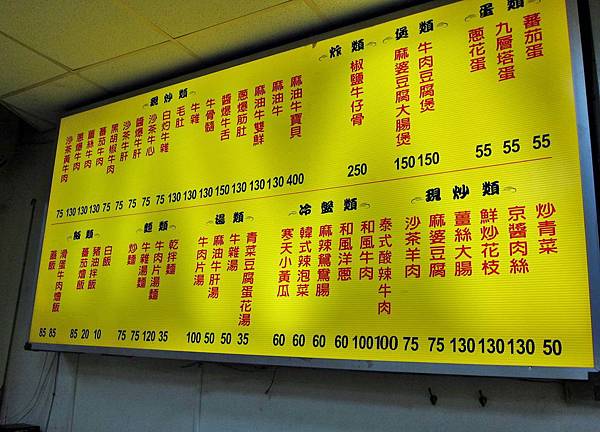 蛋類
蕃茄蛋 55
九層塔蛋 55
蔥花蛋 55
煲類
牛肉豆腐煲 150
麻婆豆腐大腸煲 150
炸類
椒鹽牛仔骨 250
現炒類
麻油牛寶貝 400
麻油牛 130
麻油牛雙鮮 130
蔥爆肋肉 130
醬爆牛舌 150
牛骨髓 130
牛雜 130
毛肚 130
白灼牛雜 75
沙茶牛心 75
醬爆牛肝 75
沙茶牛肝 75
黑胡椒牛肉 75
蕃茄牛肉 130
薑絲牛肉 130
蔥爆牛肉 130
沙茶黃牛肉 75
現炒類
炒青菜 50
京醬肉絲 130
鮮炒花枝 130
薑絲大腸 130
麻婆豆腐 75
沙茶羊肉 75
冷盤類
泰式酸辣牛肉 100
和風牛肉 100
和風洋蔥 60
麻辣鴛鴦腸 60
韓式辣泡菜 60
寒天小黃瓜 60
湯類
青菜豆腐蛋花湯 35
牛雜湯 50
麻油牛肝湯 50
牛肉片湯 100
麵類
乾拌麵 35
牛肉片湯麵 120
牛雜湯麵 75
炒麵 75
飯類
白飯 10
豬油拌飯 20
蕃茄燴飯 85
滑蛋牛肉燴飯 85
蓋飯 85